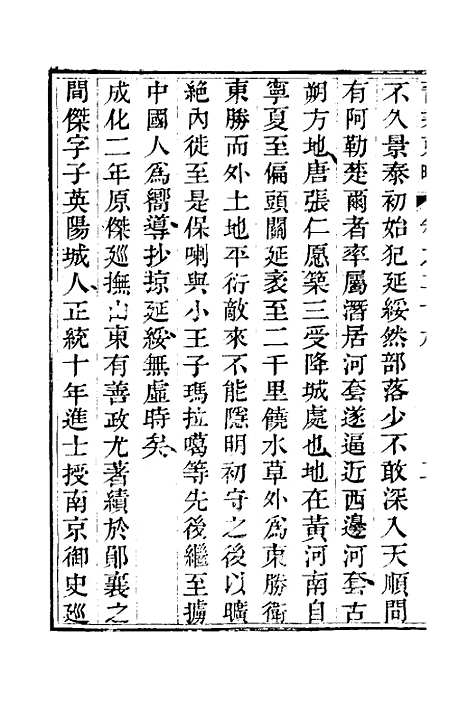 不久景泰初始犯延綏然部落少不敢深入天順間
有阿勒楚爾者率屬潛居河套遂逼近西邊河套古
朔方地唐張仁愿築三受降城處也地在黃河南自
寧夏至偏頭關延袤至二千里饒水草外為東勝衛
東勝而外土地平衍敵來不能隱明初守之後以曠
絕內徙至是保喇與小王子瑪拉噶等先後繼至擄
中國人為嚮導抄掠延綏無虛時矣
成化二年原傑廵撫山東有善政尤著績於鄖襄之
間傑字子英陽城人正統十年進士授南京御史廵